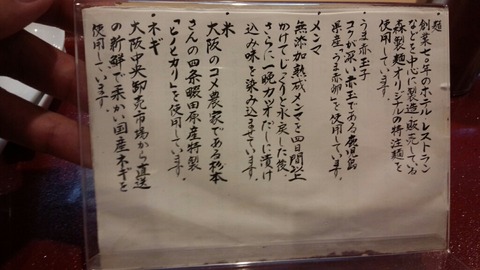 麺
創業七〇年のホテル レストラン
などを中心に製造・販売している
森製麺オリジナルの特注麺を
使用しています。
・うま赤玉子
コクが深い赤玉である鹿児島
県産「うま赤卵」を使用しています。
・メンマ
無添加熟成メンマを四日間以上
かけてじっくりと水戻しした後
さらに一晩カツオだしに漬け
込み味を染み込ませています。
・米
大阪のコメ農家である杉本
さんの四条畷田原産特製
「ヒノヒカリ」を使用しています。
・ネギ
大阪中央卸売市場から直送
の新鮮で柔かい国産ネギを
使用しています。